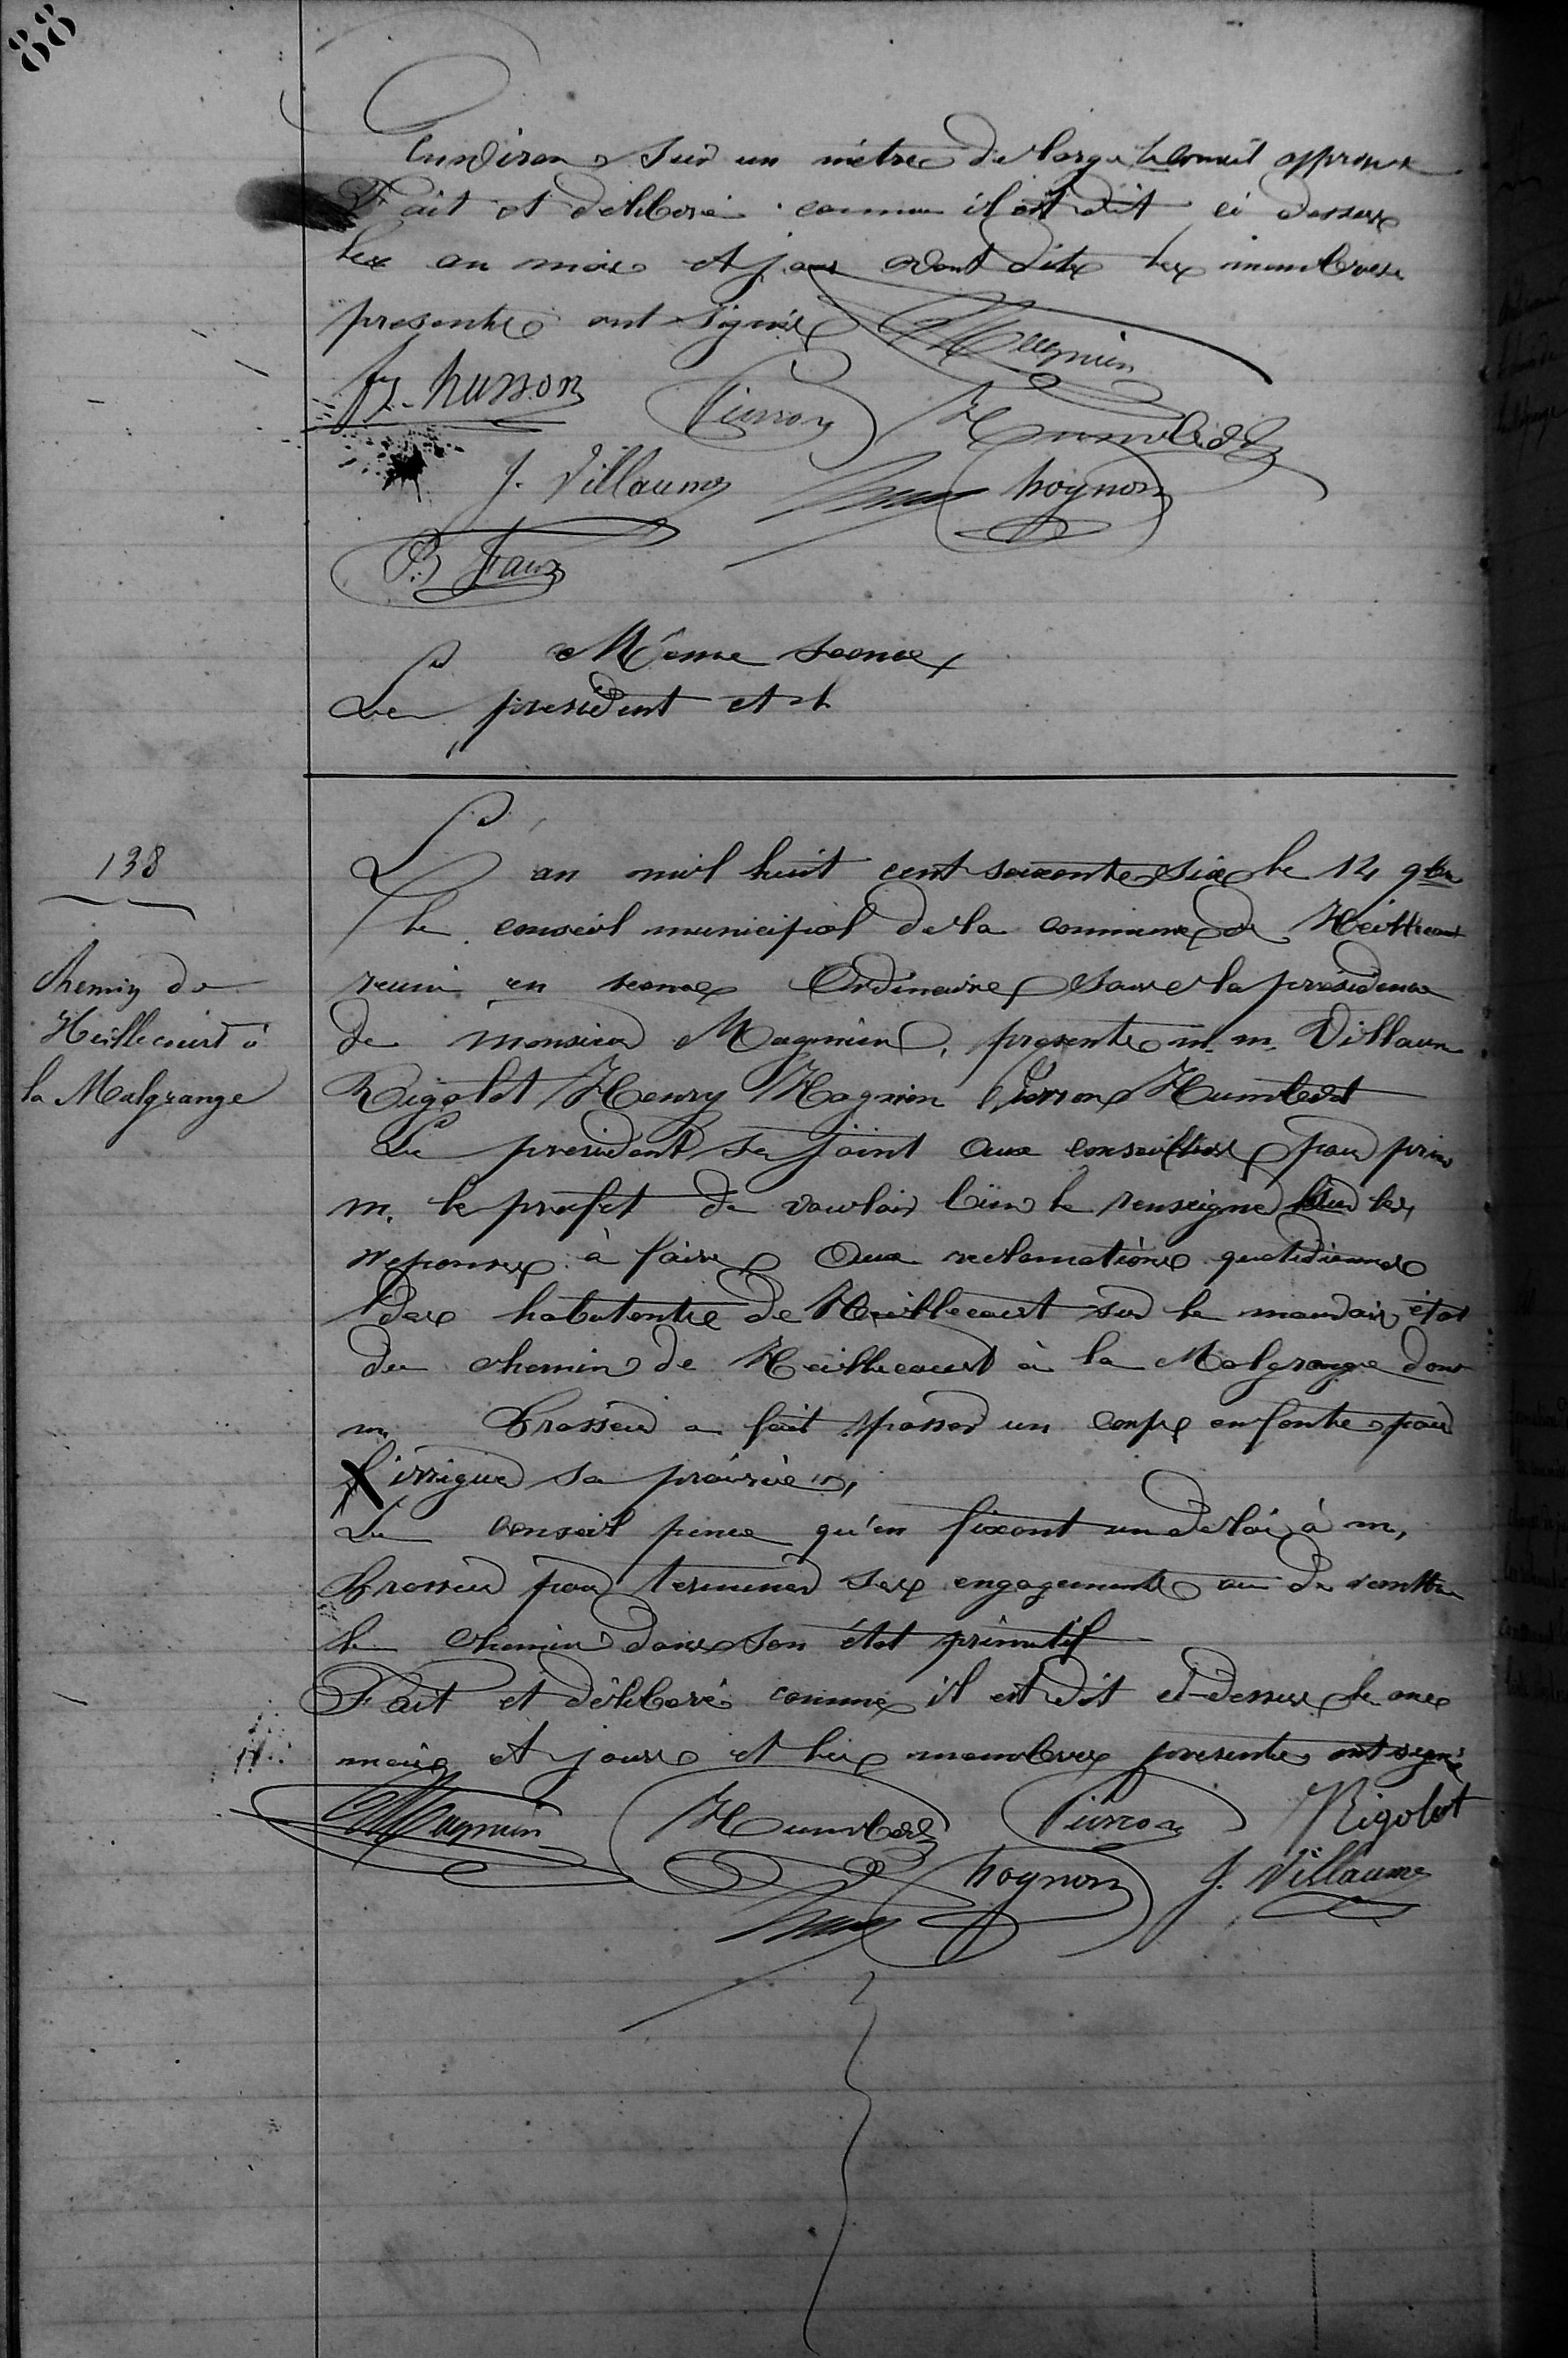 88
Environ sur un mètre de large le Conseil approuve
Fait et délibéré comme il est dit ci dessus
les an mois et jour avant dits les membres
presents ont signés Magnien
fx. husson Pierron Humbert
J. Villaume hognon
B Faux
Même seance
Le president et l
138
Chemin de
Heillecourt à
la Malgrange
L an mil huit cent soixante six le 14 9bre
le conseil municipal de la commune de Heillecourt
reuni en seance Ordinaire sous la présidence
de monsieur Magnien, presents m. m. Villaume
Rigolot Henry Hognon Pierron Humbert
Le president se joint aux conseillers pour prier
m. le prefet de vouloir bien le renseigné sur les
reponses à faire aux reclamations quotidiennes
des habitants de Heillecourt sur le mauvais état
du chemin de Heillecourt à la Malgrange dont
m. Brasseur a fait passer un corps en fonte pour
l'irriguer sa prairie,
Le conseil pence qu'en fixant un delai à m,
Brasseur pour terminer ses engagements ou de remettre
le chemin dans son état primitif
Fait et délibéré comme il est dit ci-dessus le ans
mois et jours et les membres presents ont signé
Magnien Humbert Pierron Rigolot
hognon J. Villaume